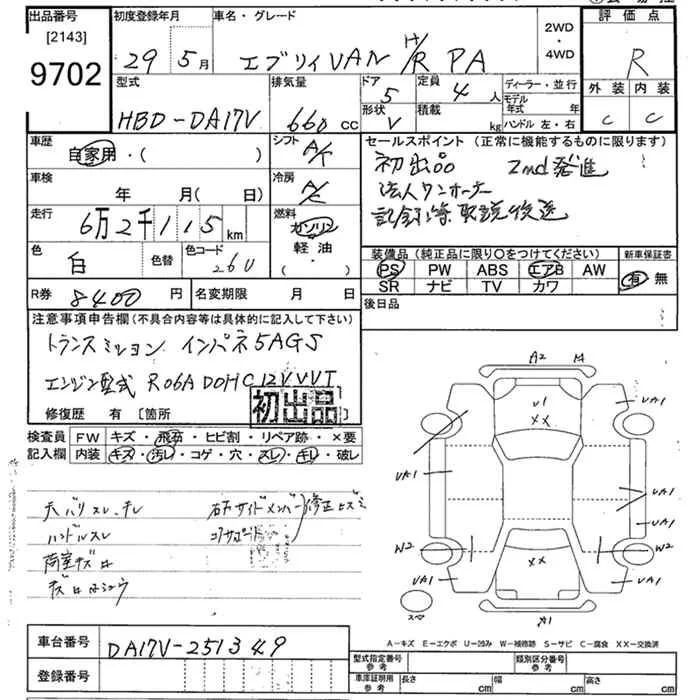 出品番号 初度登録年月 車名・グレード 2WD・4WD 評価点
[2143]
9702 29年5月 エブリィVAN R PA R
外装 内装
C C
型式 排気量 ドア 定員 ディーラー・並行
HBD-DA17V 660cc 5 4人 モデル年式 年
形状 V 積載 kg ハンドル 左・右
車歴 自家用・( ) シフト A/T
セールスポイント(正常に機能するものに限ります)
初出品 2nd発進
法人ワンオーナー
記録簿取説後送
車検 年 月(日) 冷房 A/C
走行 6万2千115km 燃料 ガソリン 軽油・( )
色 白 色替 色コード 26U
装備品(純正品に限り〇をつけてください) 新車保証書
PS PW ABS エアB AW 有・無
SR ナビ TV カワ
R券 8400円 名変期限 月 日
後日品
注意事項申告欄(不具合内容等は具体的に記入して下さい)
トランスミション インパネ5AGS
エンジン型式 R06A DOHC12V VVT
修復歴 有 [箇所
初出品
検査員 FW キズ・飛石・ヒビ割・リペア跡・×要
記入欄 内装 キズ・汚レ・コゲ・穴・スレ・キレ・破レ
ハンドルスレ コアサポート
荷室キズ
A2
U1
××
UA1
UA1
UA1
UA1
UA1
W2
W2
UA1
UA1
××
スペ
A-キズ E-エクボ U-凹み W-補修跡 S-サビ C-腐食 XX-交換済
車台番号 DA17V-251349
登録番号
型式指定番号 参考 類別区分番号 参考
車庫証明用 参考 長さ cm 幅 cm 高さ cm